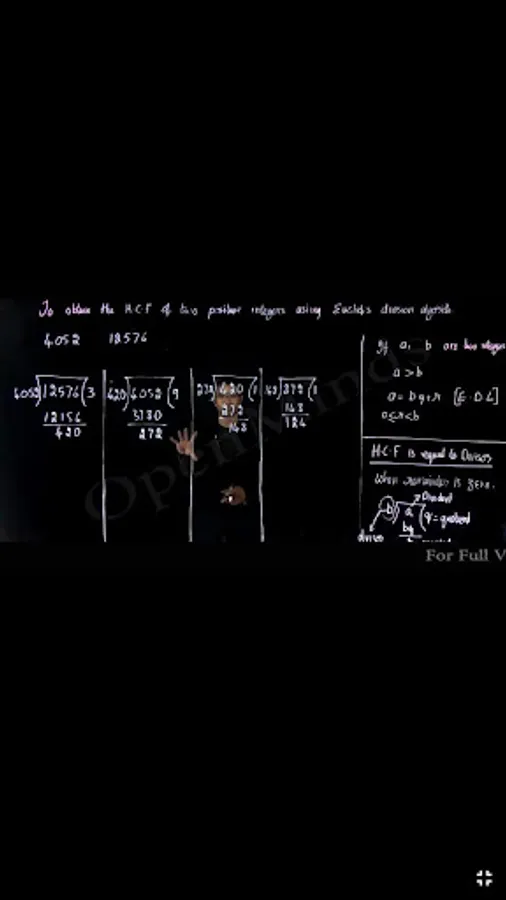 To obtain the H.C.F of two positive integers using Euclid's division
4052 12576
4052)12576(3
12156
420
420)4052(9
3780
272
272)420(1
272
148
148)272(1
148
124
If a, b are two
a > b
a = bq + r [E.D.L]
H.C.F is equal to Divisor
When remainder is zero.
Dividend
b) a (q = quotient
bq
divisor
OpenMinds
For Full V